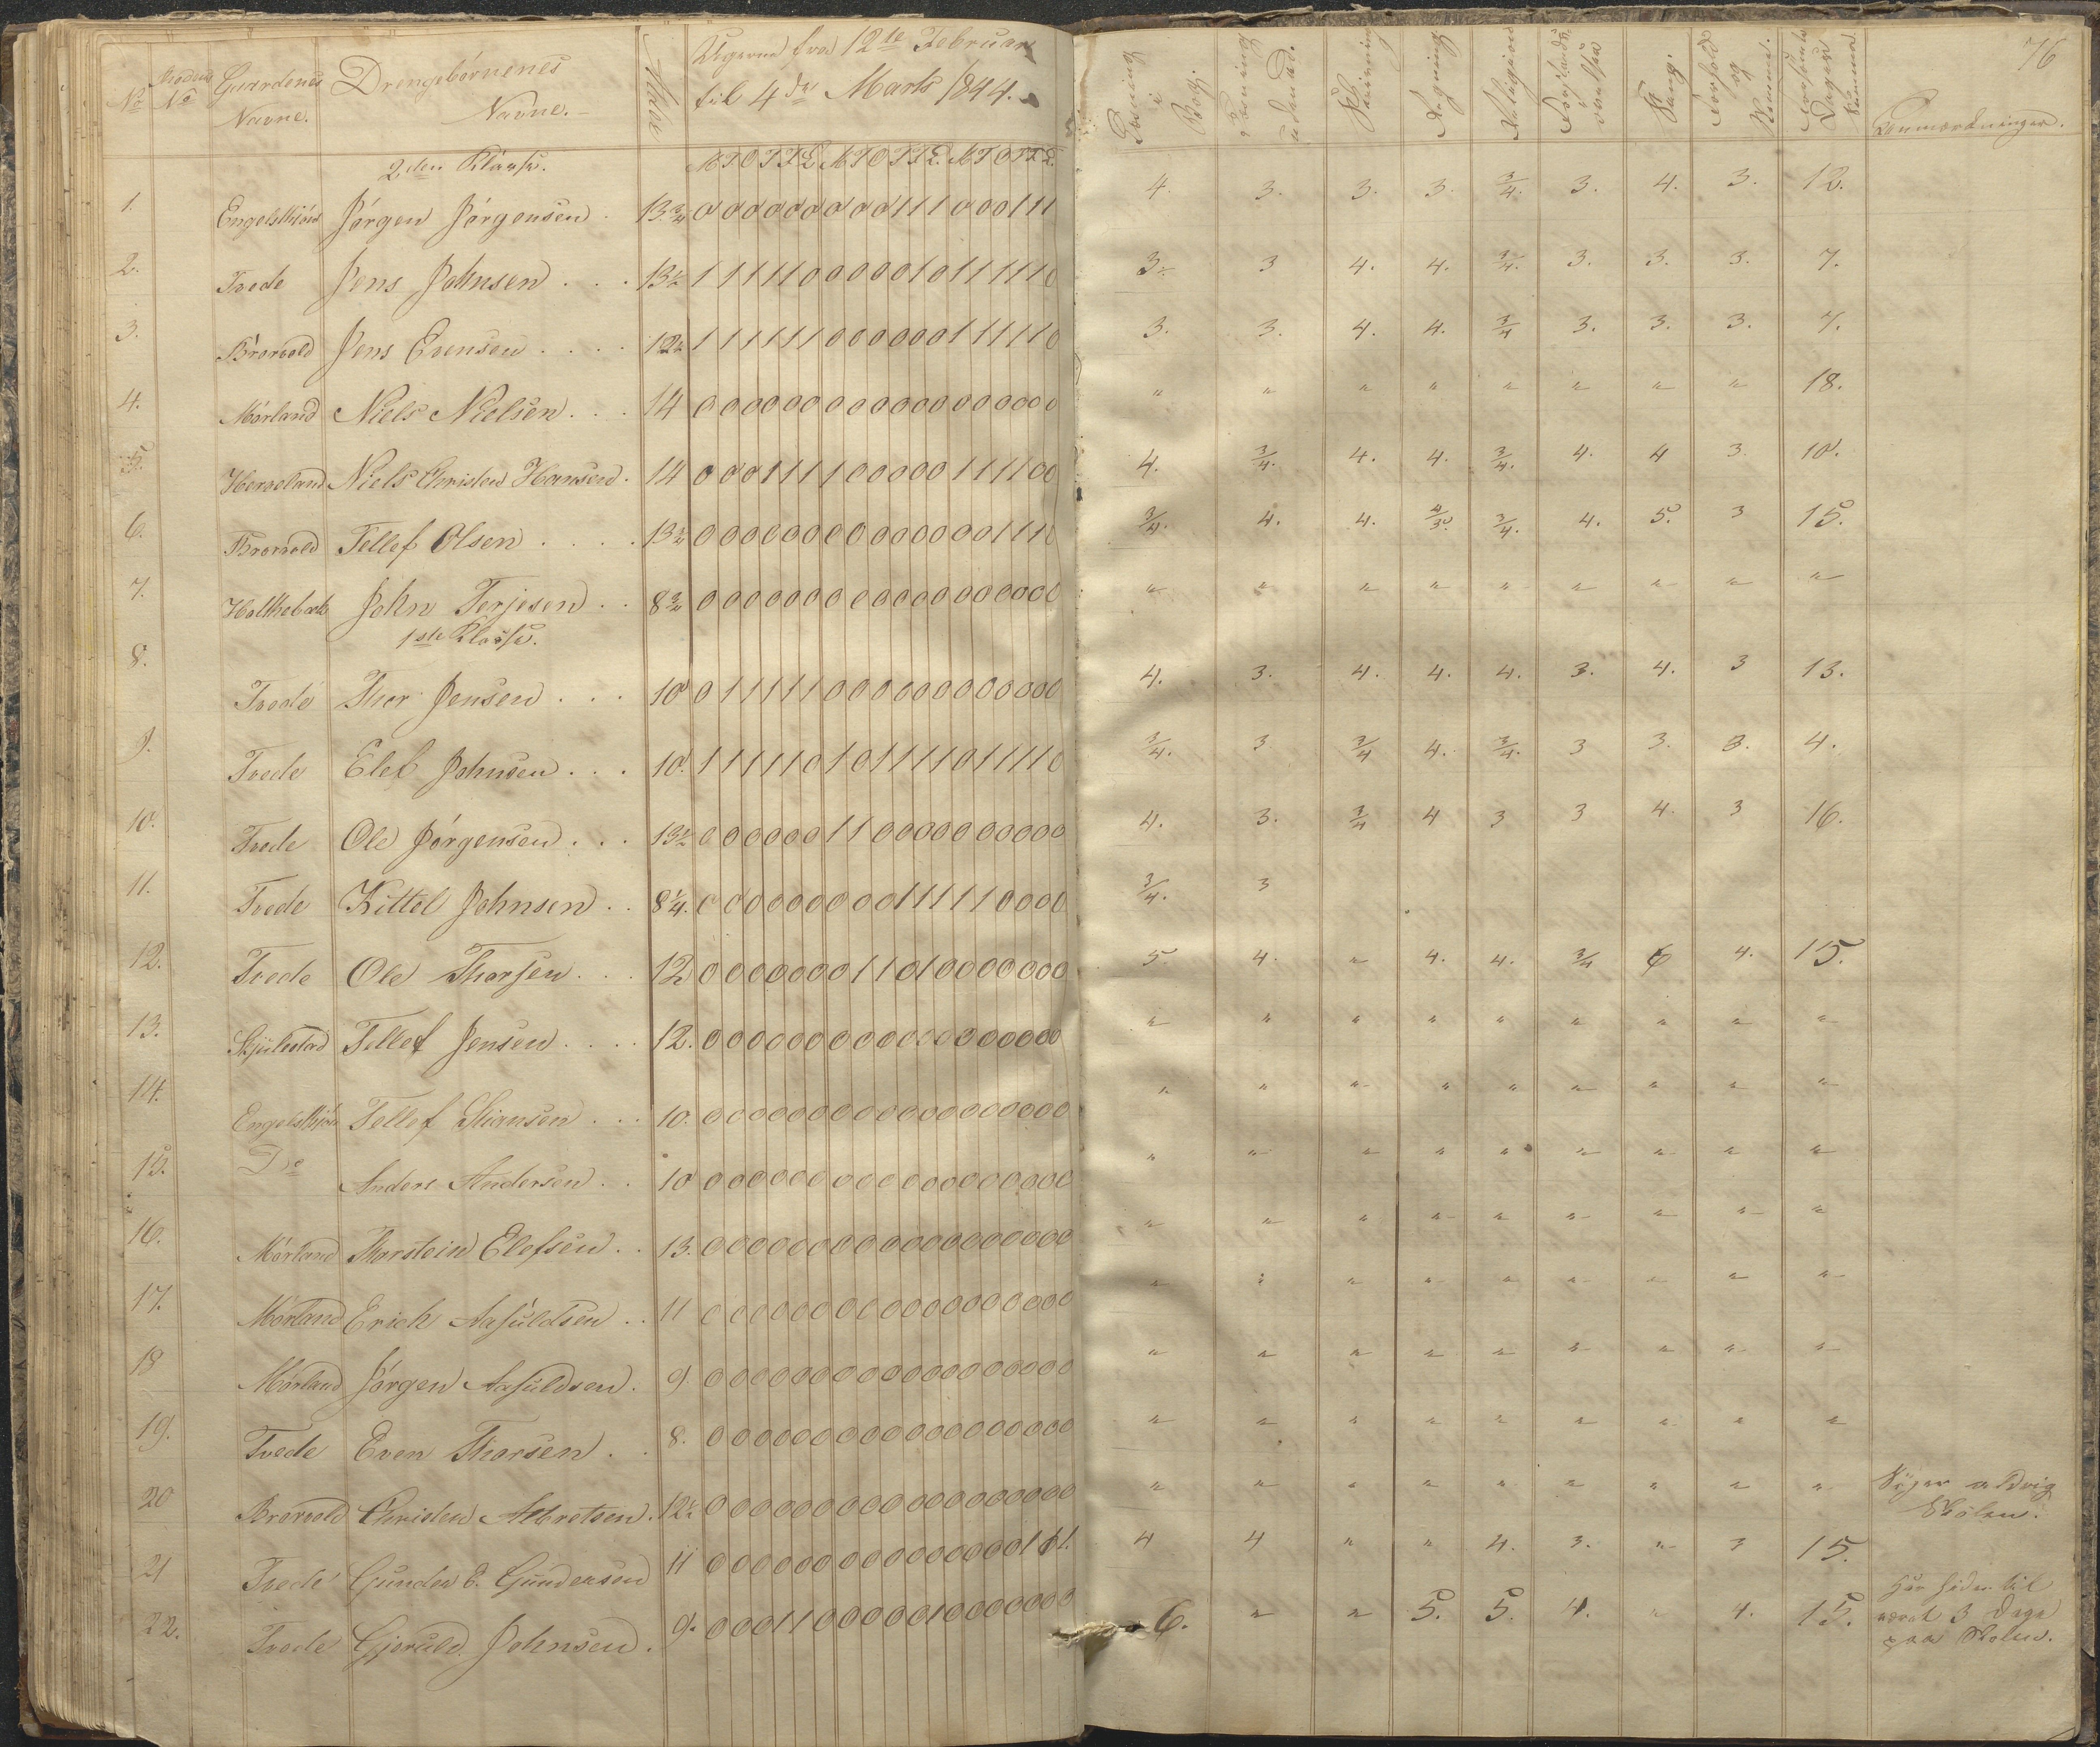 No Rodens No Gaardenes Navne. Drengebørnenes Navne. Alder Ugerne fra 12te Februar til 4de Marts 1844. Læsning i Bog. Læsning udenad. Skrivning Regning Religion Forstands øvelser Sang. Forhold og Forsømte Dages Summa Anmærkninger. 76
2den Klasse. M T O T F L M T O T F L M T O T F L
1. Engelskjøn Jørgen Jørgensen . 13¾ 0 0 0 0 0 0 0 0 0 1 1 1 0 0 0 1 1 1 4. 3. 3. 3. 3/4. 3. 4. 3. 12.
2. Tvede Jens Johnsen . . . 13½ 1 1 1 1 1 0 0 0 0 0 1 0 1 1 1 1 1 0 3. 3 4. 4. 3/4. 3. 3. 3. 7.
3. Brovold Jens Evensen . . . . 12½ 1 1 1 1 1 1 0 0 0 0 0 0 1 1 1 1 1 0 3. 3. 4. 4. 3/4 3. 3. 3. 7.
4. Mørland Niels Nielsen . . . 14 0 0 0 0 0 0 0 0 0 0 0 0 0 0 0 0 0 0 " " " " " " " " 18.
5. Herveland Niels Christen Hansen . 14 0 0 0 1 1 1 1 0 0 0 0 0 1 1 1 1 0 0 4. 3/4. 4. 4. 3/4. 4. 4 3 10.
6. Brovold Tellef Olsen . . . . 13¾ 0 0 0 0 0 0 0 0 0 0 0 0 0 0 1 1 1 0 3/4. 4. 4. 4/3. 3/4. 4. 5. 3 15.
7. Holtkebæk John Terjesen . . 8¾ 0 0 0 0 0 0 0 0 0 0 0 0 0 0 0 0 0 0 " " " " " " " " "
1ste Klasse.
8. Tvede Thor Jensen . . . 10 0 1 1 1 1 1 0 0 0 0 0 0 0 0 0 0 0 0 4. 3. 4. 4. 4. 3. 4. 3 13.
9. Tvede Elef Johnsen . . . 10. 1 1 1 1 1 0 1 0 1 1 1 1 0 1 1 1 1 0 3/4. 3 3/4 4. 3/4. 3 3. 3. 4.
10. Tvede Ole Jørgensen . . . 13½ 0 0 0 0 0 0 1 1 0 0 0 0 0 0 0 0 0 0 4. 3. 3/4 4 3 3 4. 3 16.
11. Tvede Kittel Johnsen . . 8¼. 0 0 0 0 0 0 0 0 0 1 1 1 1 1 0 0 0 0 3/4. 3
12. Tvede Ole Thorsen . . . 12 0 0 0 0 0 0 0 1 1 0 1 0 0 0 0 0 0 0 5 4. " 4. 4. 3/4 6 4. 15.
13. Skjulestad Tellef Jensen . . . . 12. 0 0 0 0 0 0 0 0 0 0 0 0 0 0 0 0 0 0 " " " " " " " " "
14. Engelskjøn Tellef Stiansen . . . 10. 0 0 0 0 0 0 0 0 0 0 0 0 0 0 0 0 0 0 " " " " " " " " "
15. Do Anders Andersen . . 10 0 0 0 0 0 0 0 0 0 0 0 0 0 0 0 0 0 0 " " " " " " " " "
16. Mørland Thorstein Elefsen . . 13. 0 0 0 0 0 0 0 0 0 0 0 0 0 0 0 0 0 0 " " " " " " " " "
17. Mørland Erich Aasuldsen . . 11 0 0 0 0 0 0 0 0 0 0 0 0 0 0 0 0 0 0 " " " " " " " " "
18 Mørland Jørgen Aasuldsen . 9. 0 0 0 0 0 0 0 0 0 0 0 0 0 0 0 0 0 0 " " " " " " " " "
19. Tvede Even Thorsen . . 8. 0 0 0 0 0 0 0 0 0 0 0 0 0 0 0 0 0 0 " " " " " " " " "
20 Brovold Christen Albretsen . 12½ 0 0 0 0 0 0 0 0 0 0 0 0 0 0 0 0 0 0 " " " " " " " " " Søger aldrig Skolen.
21 Tvede Gunder E. Gundersen 11 0 0 0 0 0 0 0 0 0 0 0 0 0 0 0 1 1 1. 4 4 " " 4. 3. " 3 15.
22. Tvede Gjeruld Johnsen . 9. 0 0 0 1 1 0 0 0 0 0 1 0 0 0 0 0 0 0 6. " " 5. 5. 4. " 4. 15. Har siden til været 3 Dage paa Skolen.